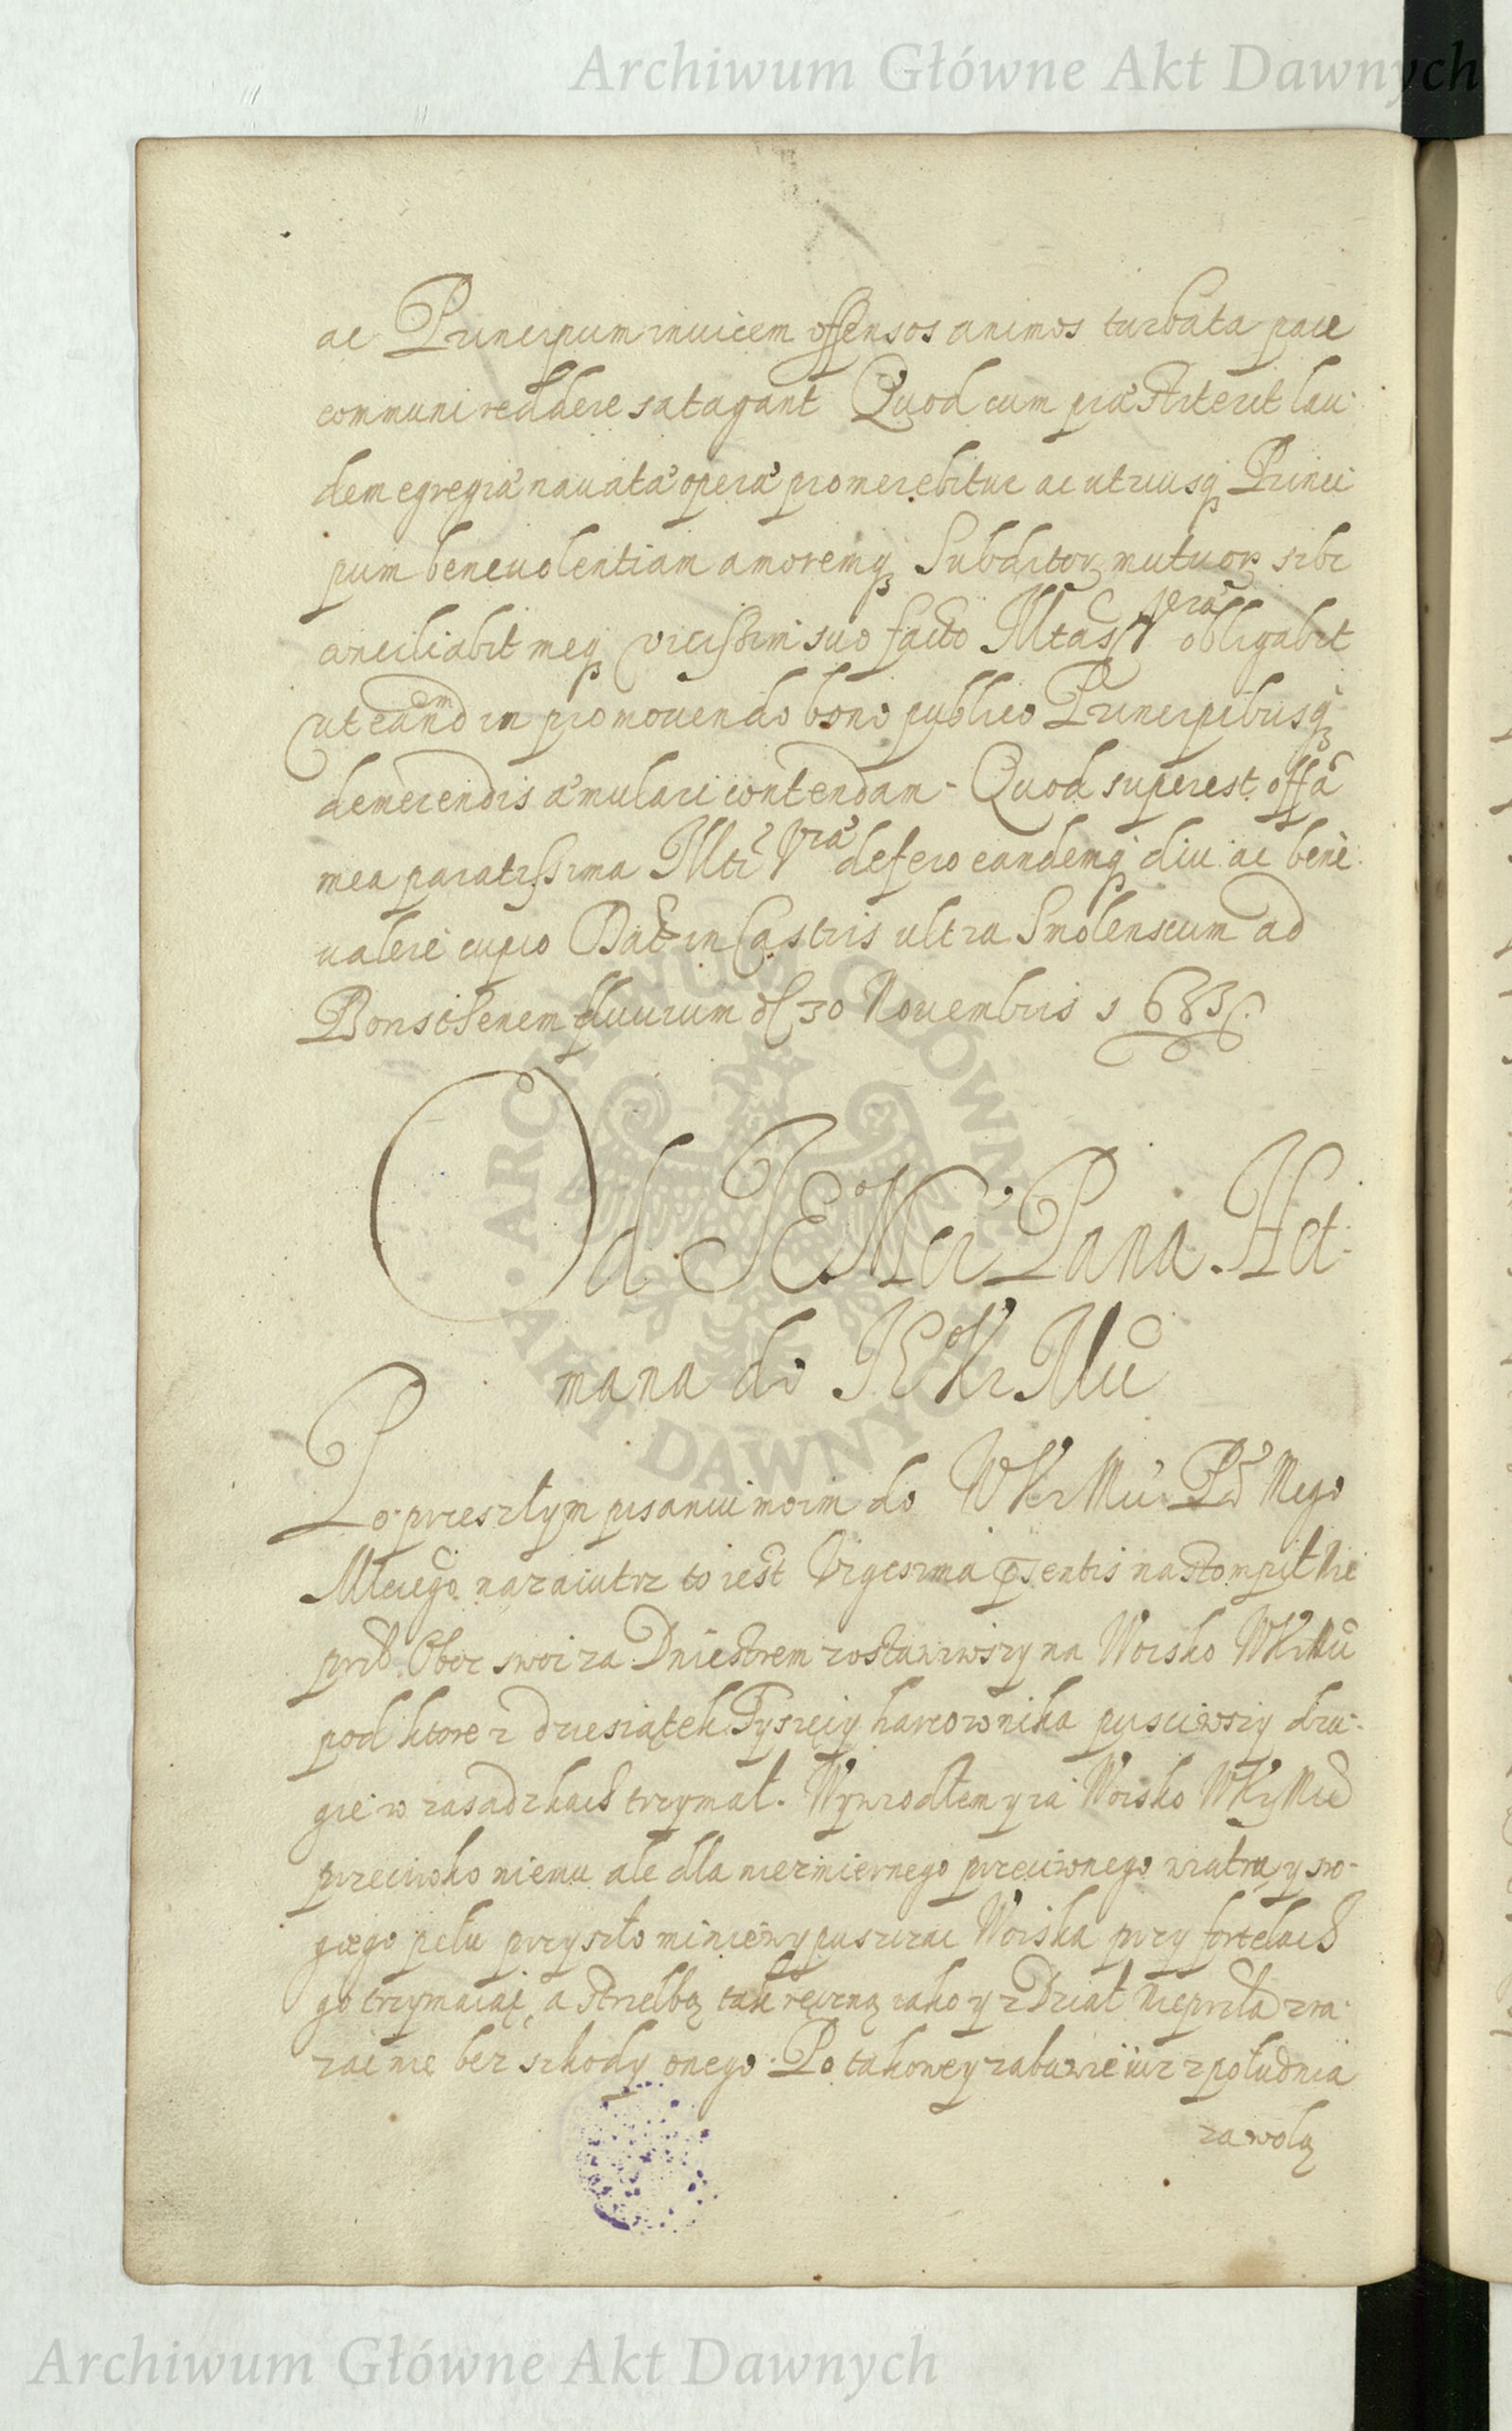 Archiwum Główne Akt Dawnych
ac Principum inuicem offensos animos turbata pace
communi reddere satagant Quod cum præstiterit lau-
dem egregiæ nauatæ operæ promerebitur ac utriusq Princi-
pum beneuolentiam amoremq Subditor mutuor sibi
conciliabit meq vicissim suo facto Mtas Vra obligabit
ut eandm in promouendo bono publico Principibusq
demerendis æmulari contendam - Quod superest offa
mea paratissima Mti Vræ defero eandemq diu ac bene
ualere cupio Dat in Castris ultra Smolenscum ad
fluuium d 30 Nouembris 1633
Od JE Mci Pana Het-
mana do JE Kr Mci
Po przeszłym pisaniu moim do WKr Mci Pa Mego
Mciego nazaiutrz to iest Vigesima psentis nastompił nie
przl Oboz swoi za Dniestrem zostawiwszy na Woisko WKrMci
pod ktore z dziesiątek Tysięcy harcownika pusciwszy dru-
gie w zasadzkach trzymał. Wywiodłem y ia Woisko WKr Mci
przeciwko niemu ale dla niezmiernego przeciwnego wiatru y sro-
giego pełu przyszło mi nie wypuszczac Woiska przy fortelach
go trzymaiąc, a Strzelbą tak ręczną iako y z Dział Nieprzla zra-
zaic nie bez szkody onego. Po takowey zabawie iuz z południa
za wolą
ARCHIWUM GŁÓWNE AKT DAWNYCH
Archiwum Główne Akt Dawnych